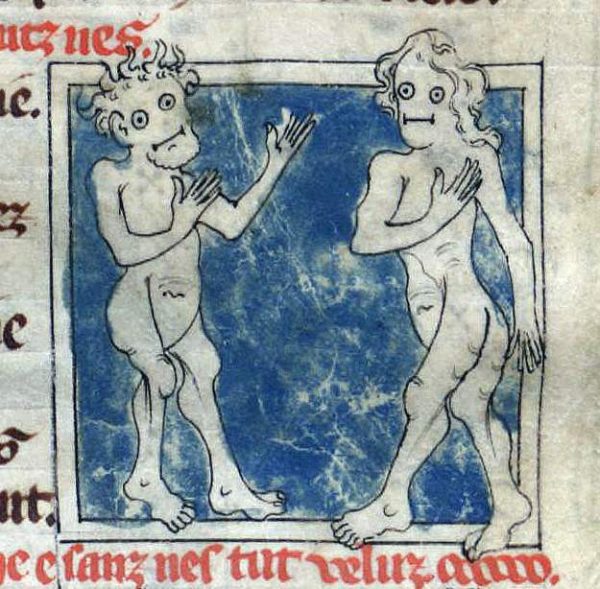 utz nes.
e.
ez
e
ut.
he e sanz nes tut veluz.